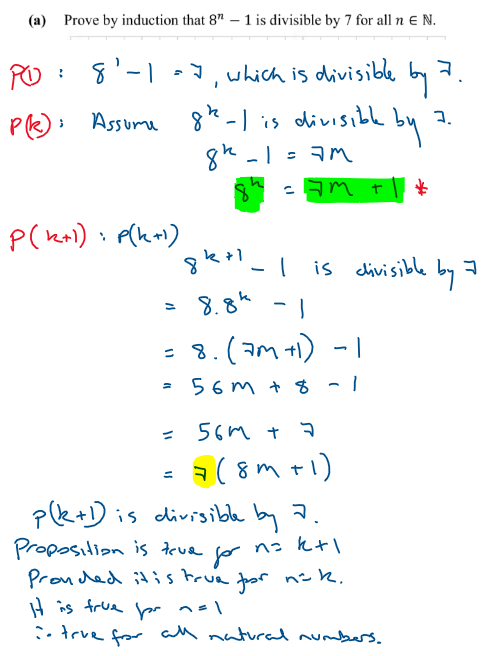 (a) Prove by induction that 8ⁿ − 1 is divisible by 7 for all n ∈ ℕ.
P(1) : 8¹ - 1 = 7, which is divisible by 7.
P(k) : Assume 8ᵏ - 1 is divisible by 7.
8ᵏ - 1 = 7M
8ᵏ = 7M + 1 *
P(k+1) : P(k+1)
8ᵏ⁺¹ - 1 is divisible by 7
= 8.8ᵏ - 1
= 8.(7M+1) - 1
= 56M + 8 - 1
= 56M + 7
= 7(8M+1)
P(k+1) is divisible by 7.
Proposition is true for n = k+1
Provided it is true for n = k.
It is true for n = 1
∴ true for all natural numbers.